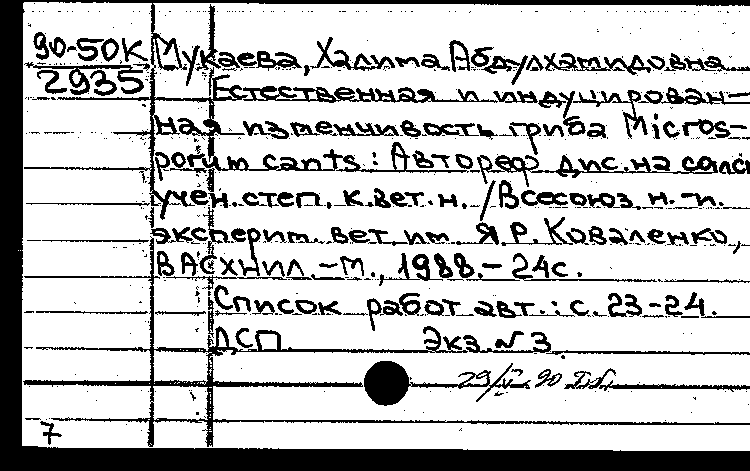 90-50К Мукаева, Халима Абдулхамидовна
2935 Естественная и индуцирован-
ная изменчивость гриба Micros-
porum canis: Автореф дис. на соиск
учен. степ. к. вет. н. /Всесоюз. н.-и.
эксперим. вет. им. Я.Р. Коваленко,
ВАСХНИЛ. -М., 1988. - 24с.
Список работ авт.: с. 23-24.
ДСП. Экз. N 3.
29/V-90
7